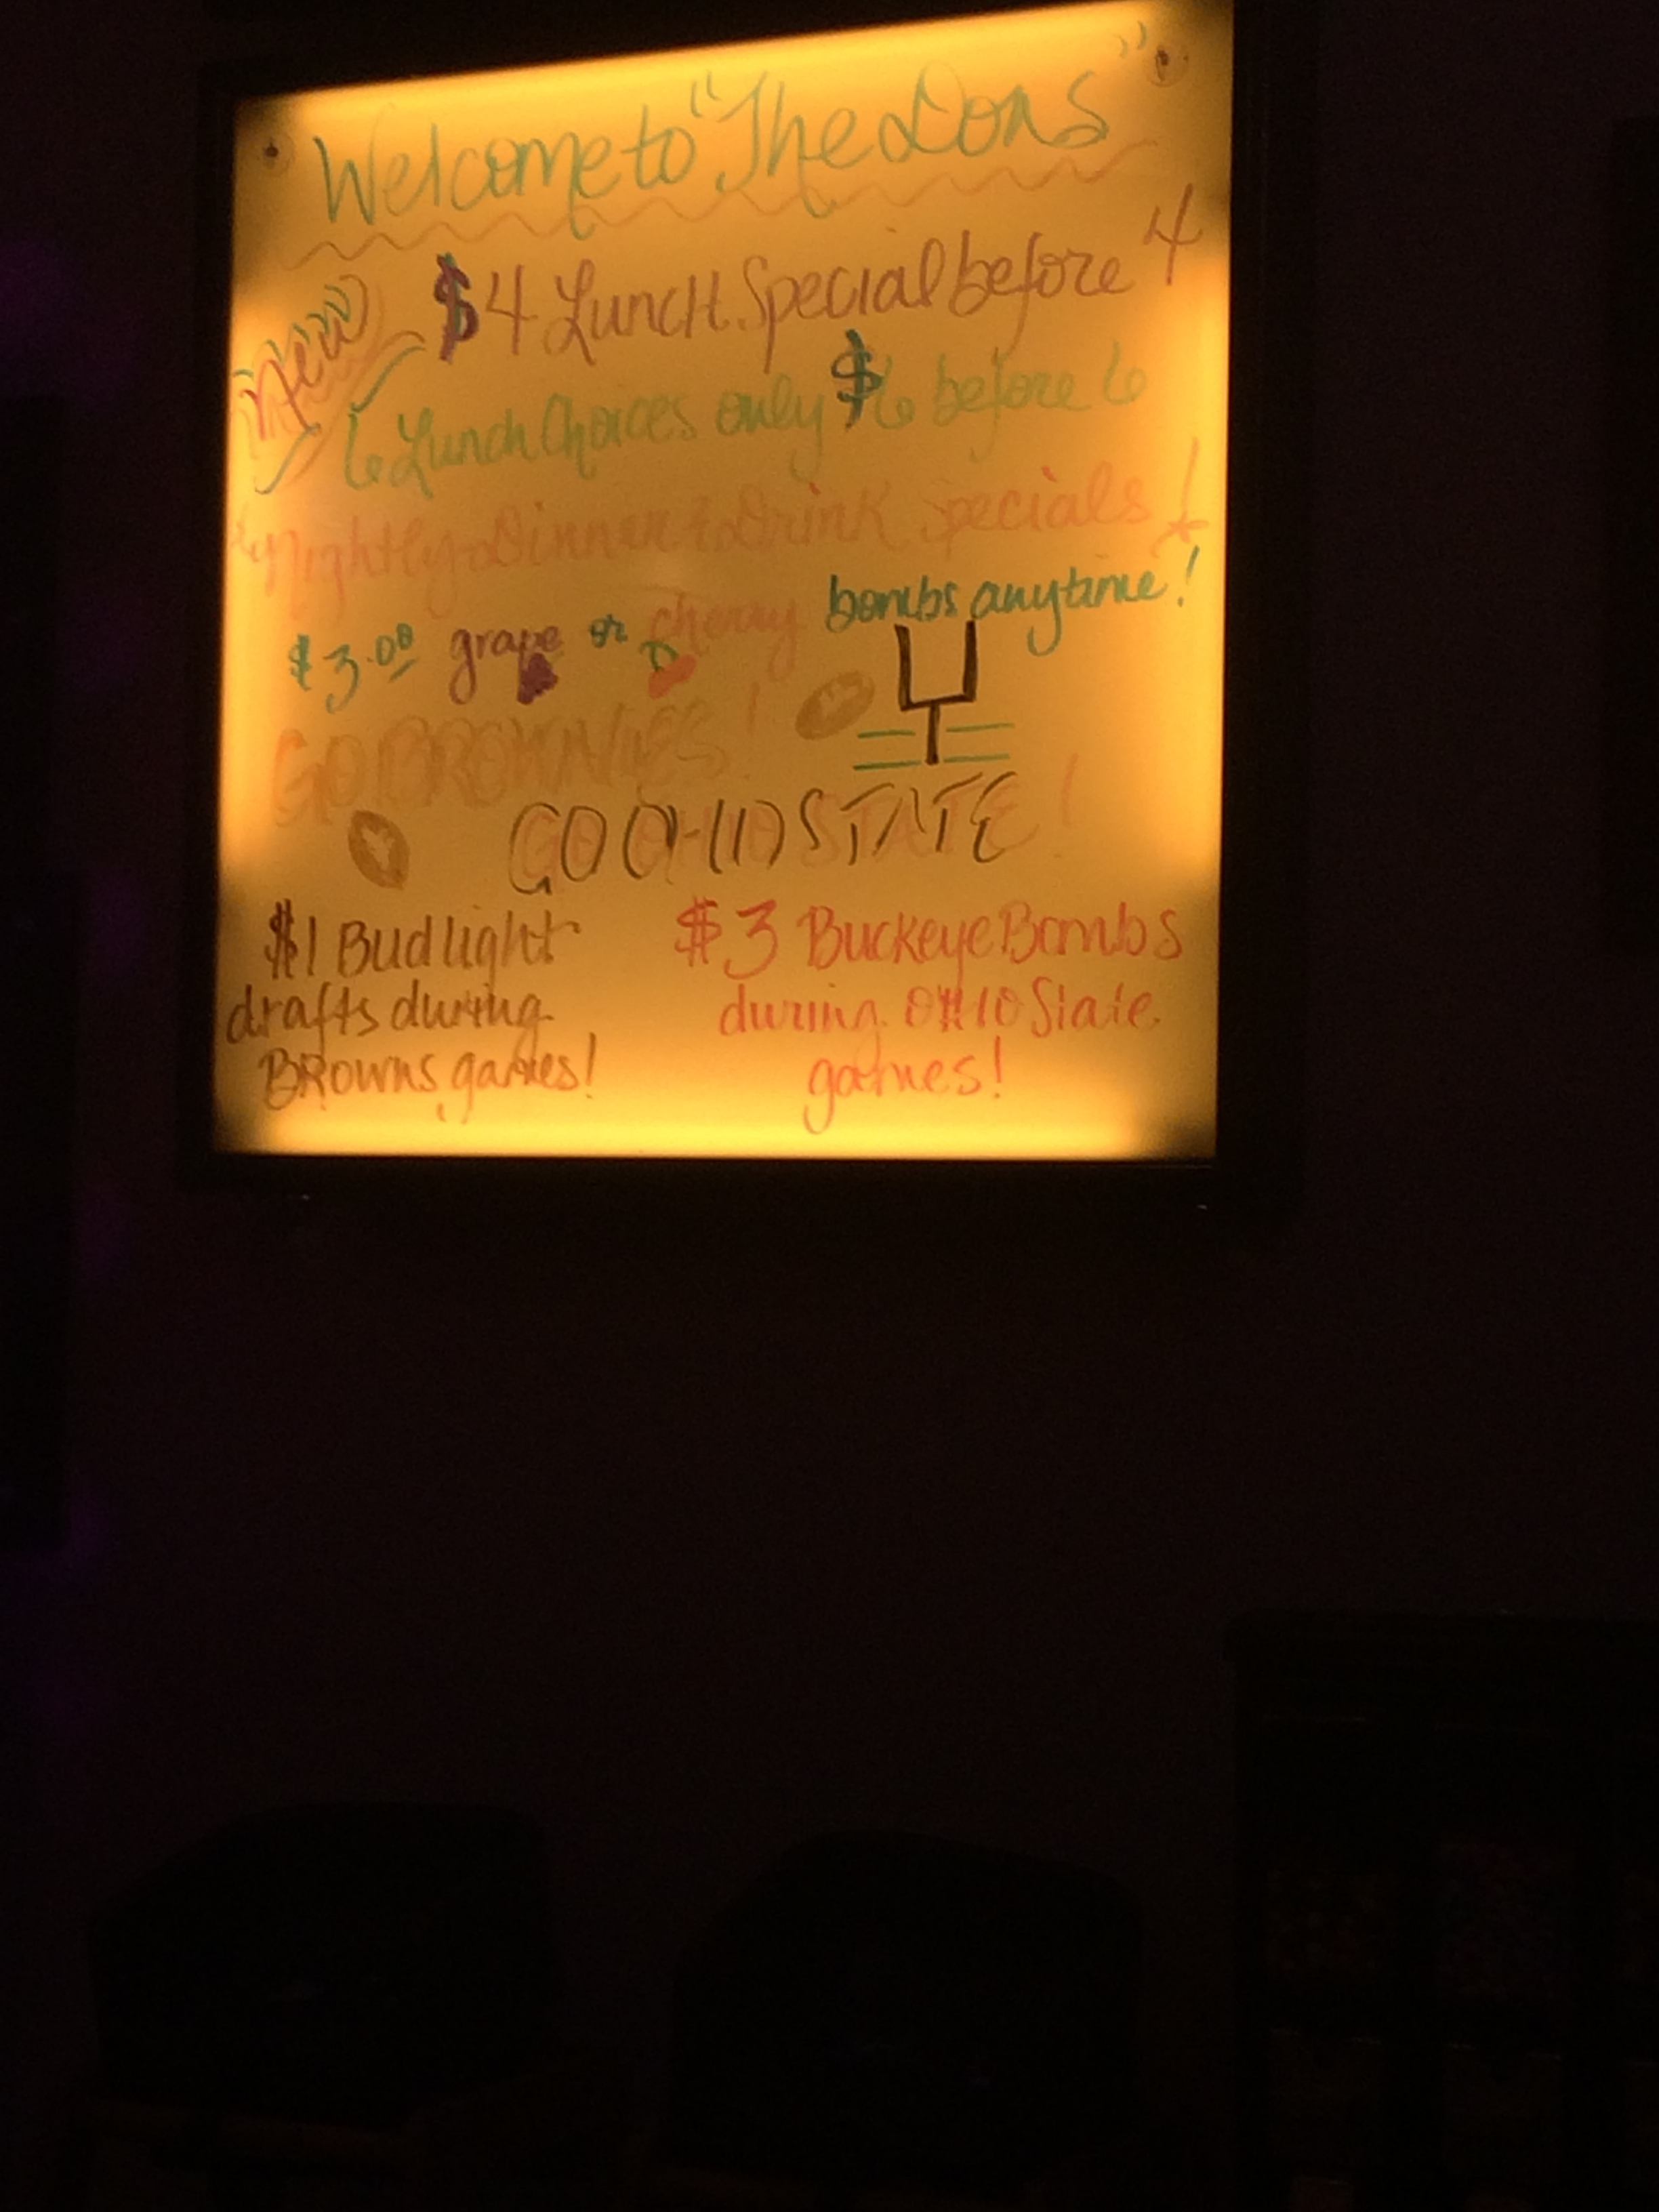 Welcome to "The Dons"
new
$4 Lunch Special before 4
6 Lunch Choices only $6 before 6
Nightly Dinner & Drink Specials!
$3.00 grape or cherry bombs anytime!
GO BROWNIES!
GO OHIO STATE!
$1 Bud light
drafts during
BROWNS games!
$3 Buckeye Bombs
during OHIO State
games!